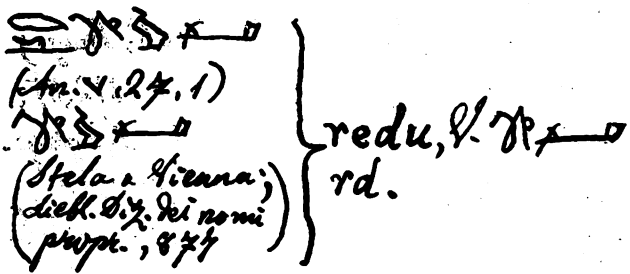 (An. V, 27, 1)
(Stela a Vienna;
Liebl. Diz. dei nomi
propr., 877)
redu, V.
rd.